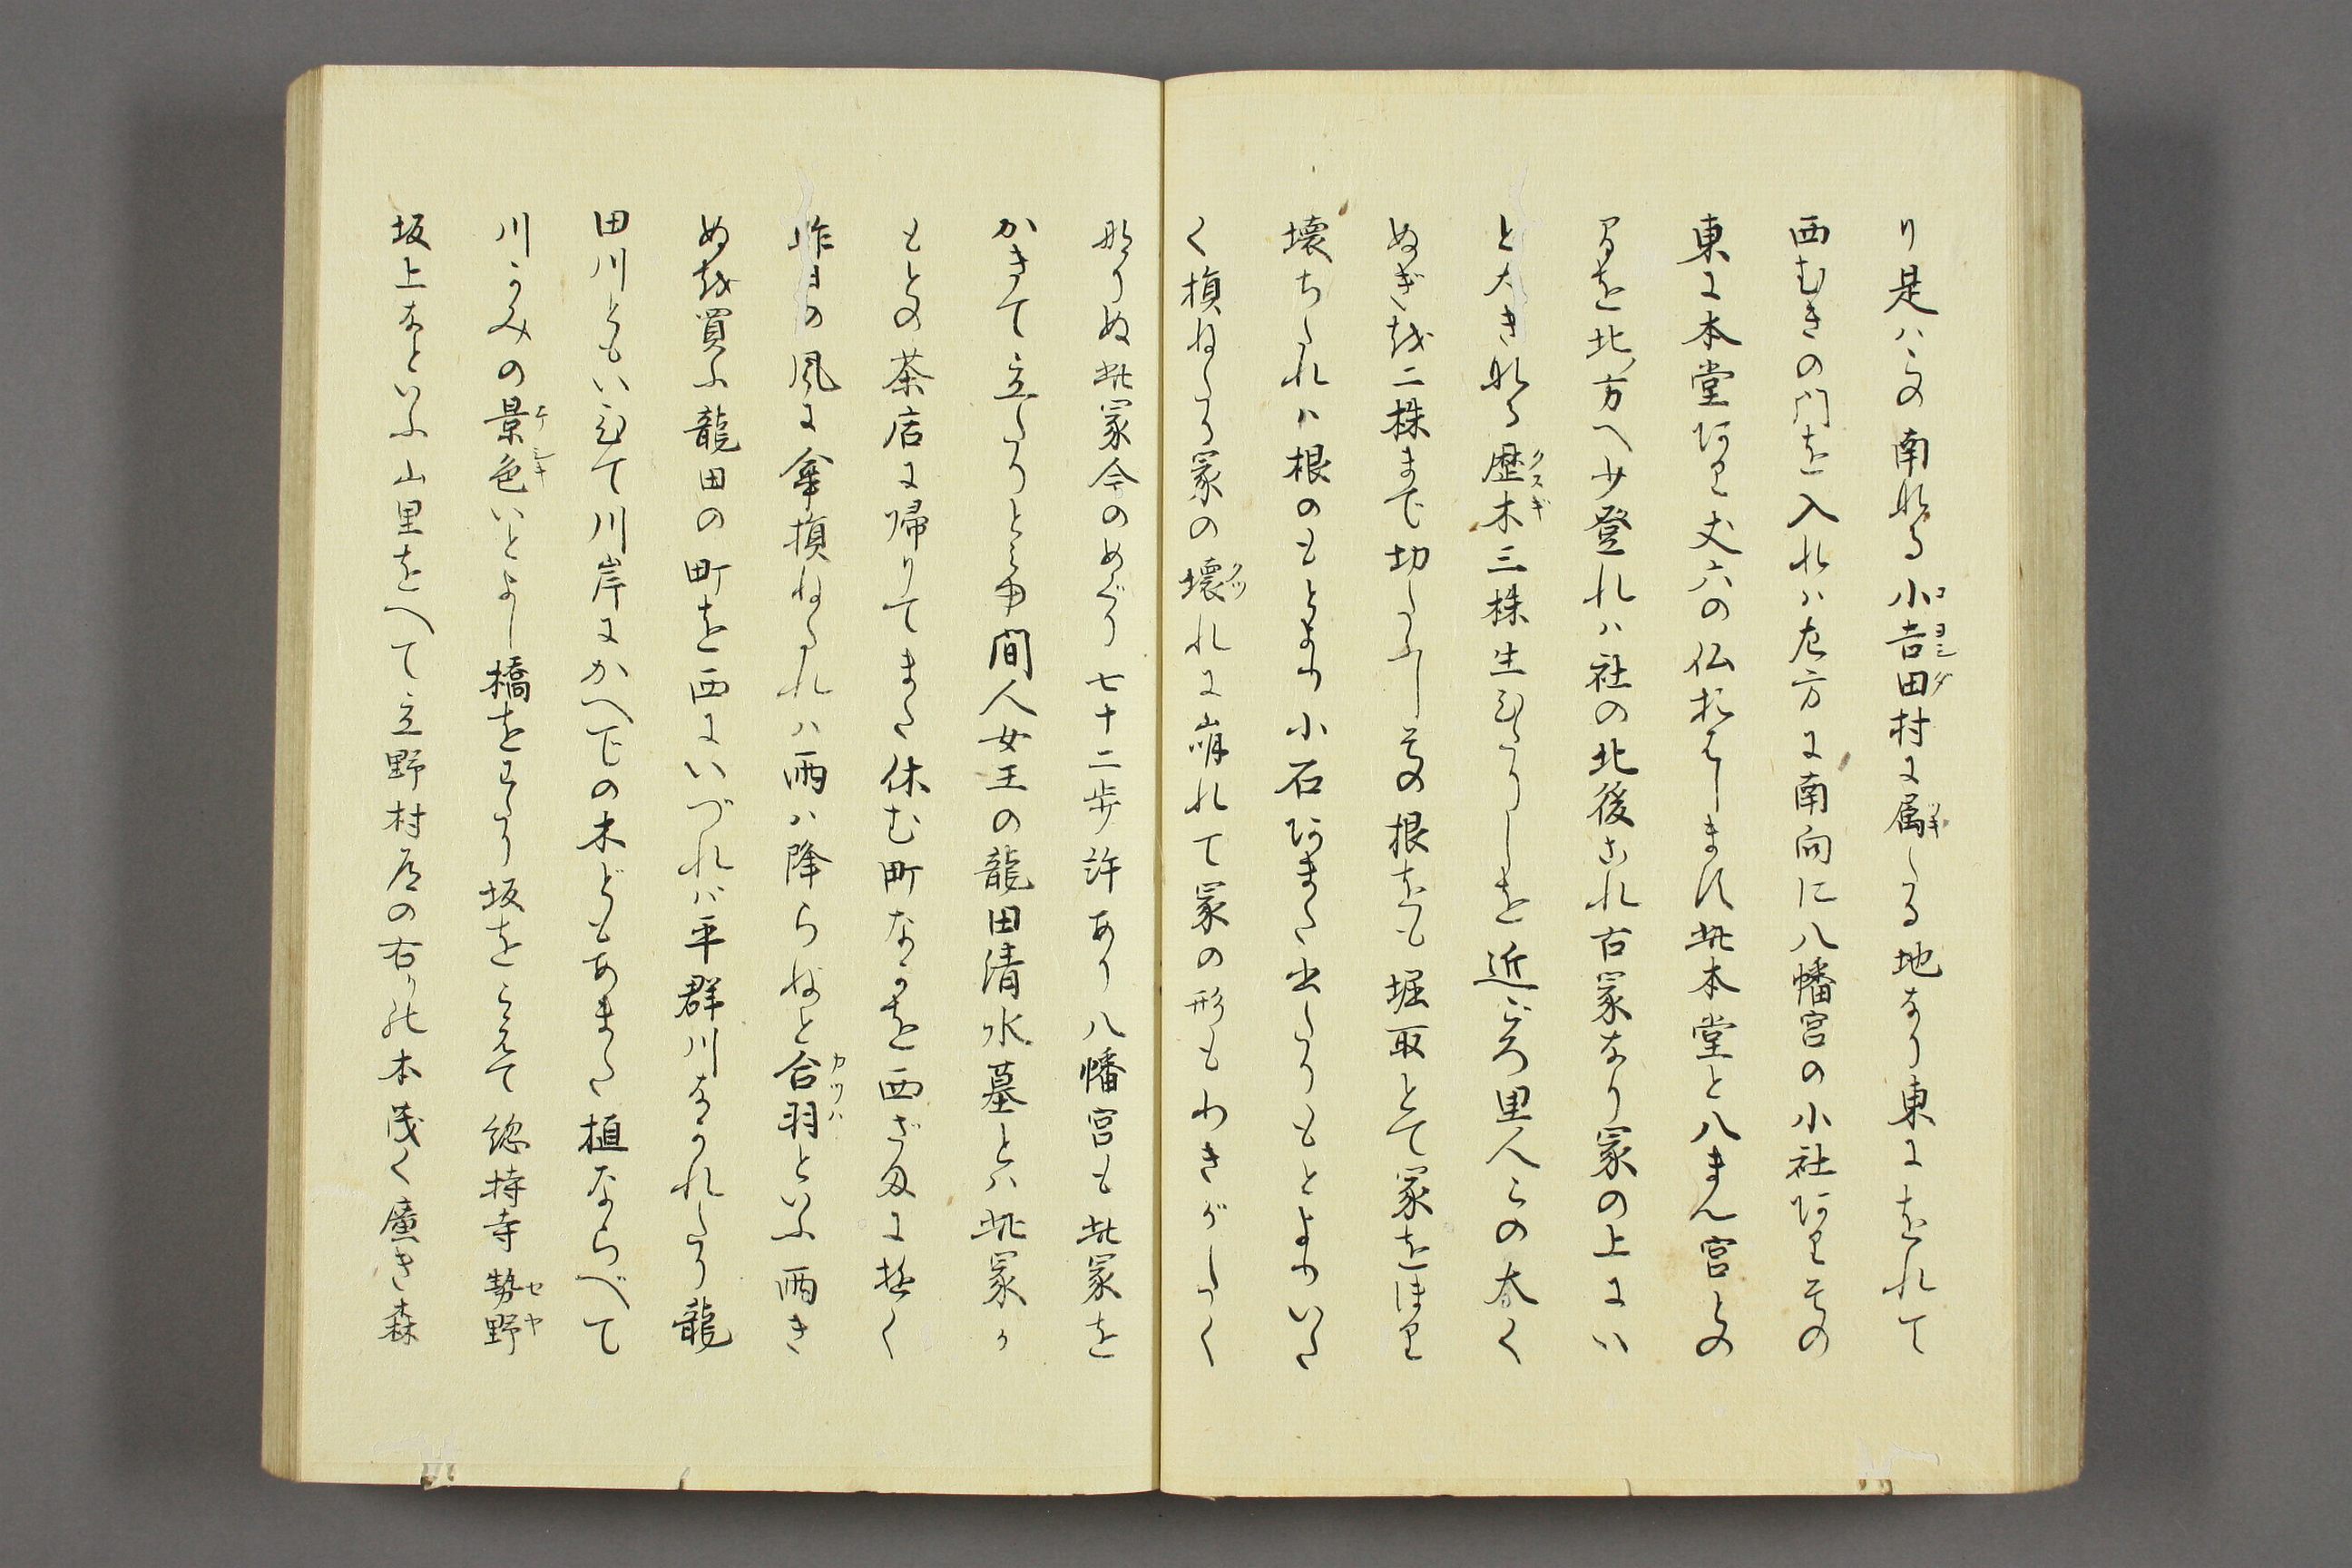 り是ハその南なる小吉田村に属たる地なり東にをれて
西むきの門を入れハ左方に南向に八幡宮の小社ありその
東に本堂あり丈六の仏おはします此本堂と八まん宮との
間を北方へ少登れハ社の北後これ古冢なり冢の上にい
と大き なる歴木三株生ひたりしを近ごろ里人らの太く
ぬぎを二株まで切たふしその根をも堀取とて冢をほり
壊ちたれハ根のもとより小石あまた出たりもとよりいた
く損ねたる冢の壊れに崩れて冢の形もわきがたく
なりぬ此冢今のめぐり七十二歩許あり八幡宮も此冢を
かきて立たりとみゆ間人女王の龍田清水墓とハ此冢か
もとの茶店に帰りてまた休む町なかを西ざまに控く
昨日の風に傘損ねたれハ雨ハ降らねと合羽といふ雨き
ぬを買ふ龍田の町を西にいづれバ平群川ながれたり龍
田川ともいひて川岸にかへでの木どもあまた植ならべて
川かみの景色いとよし橋をわたり坂をこえて総持寺勢野
坂上なといふ山里をへて立野村道の右りに木茂く廣き森